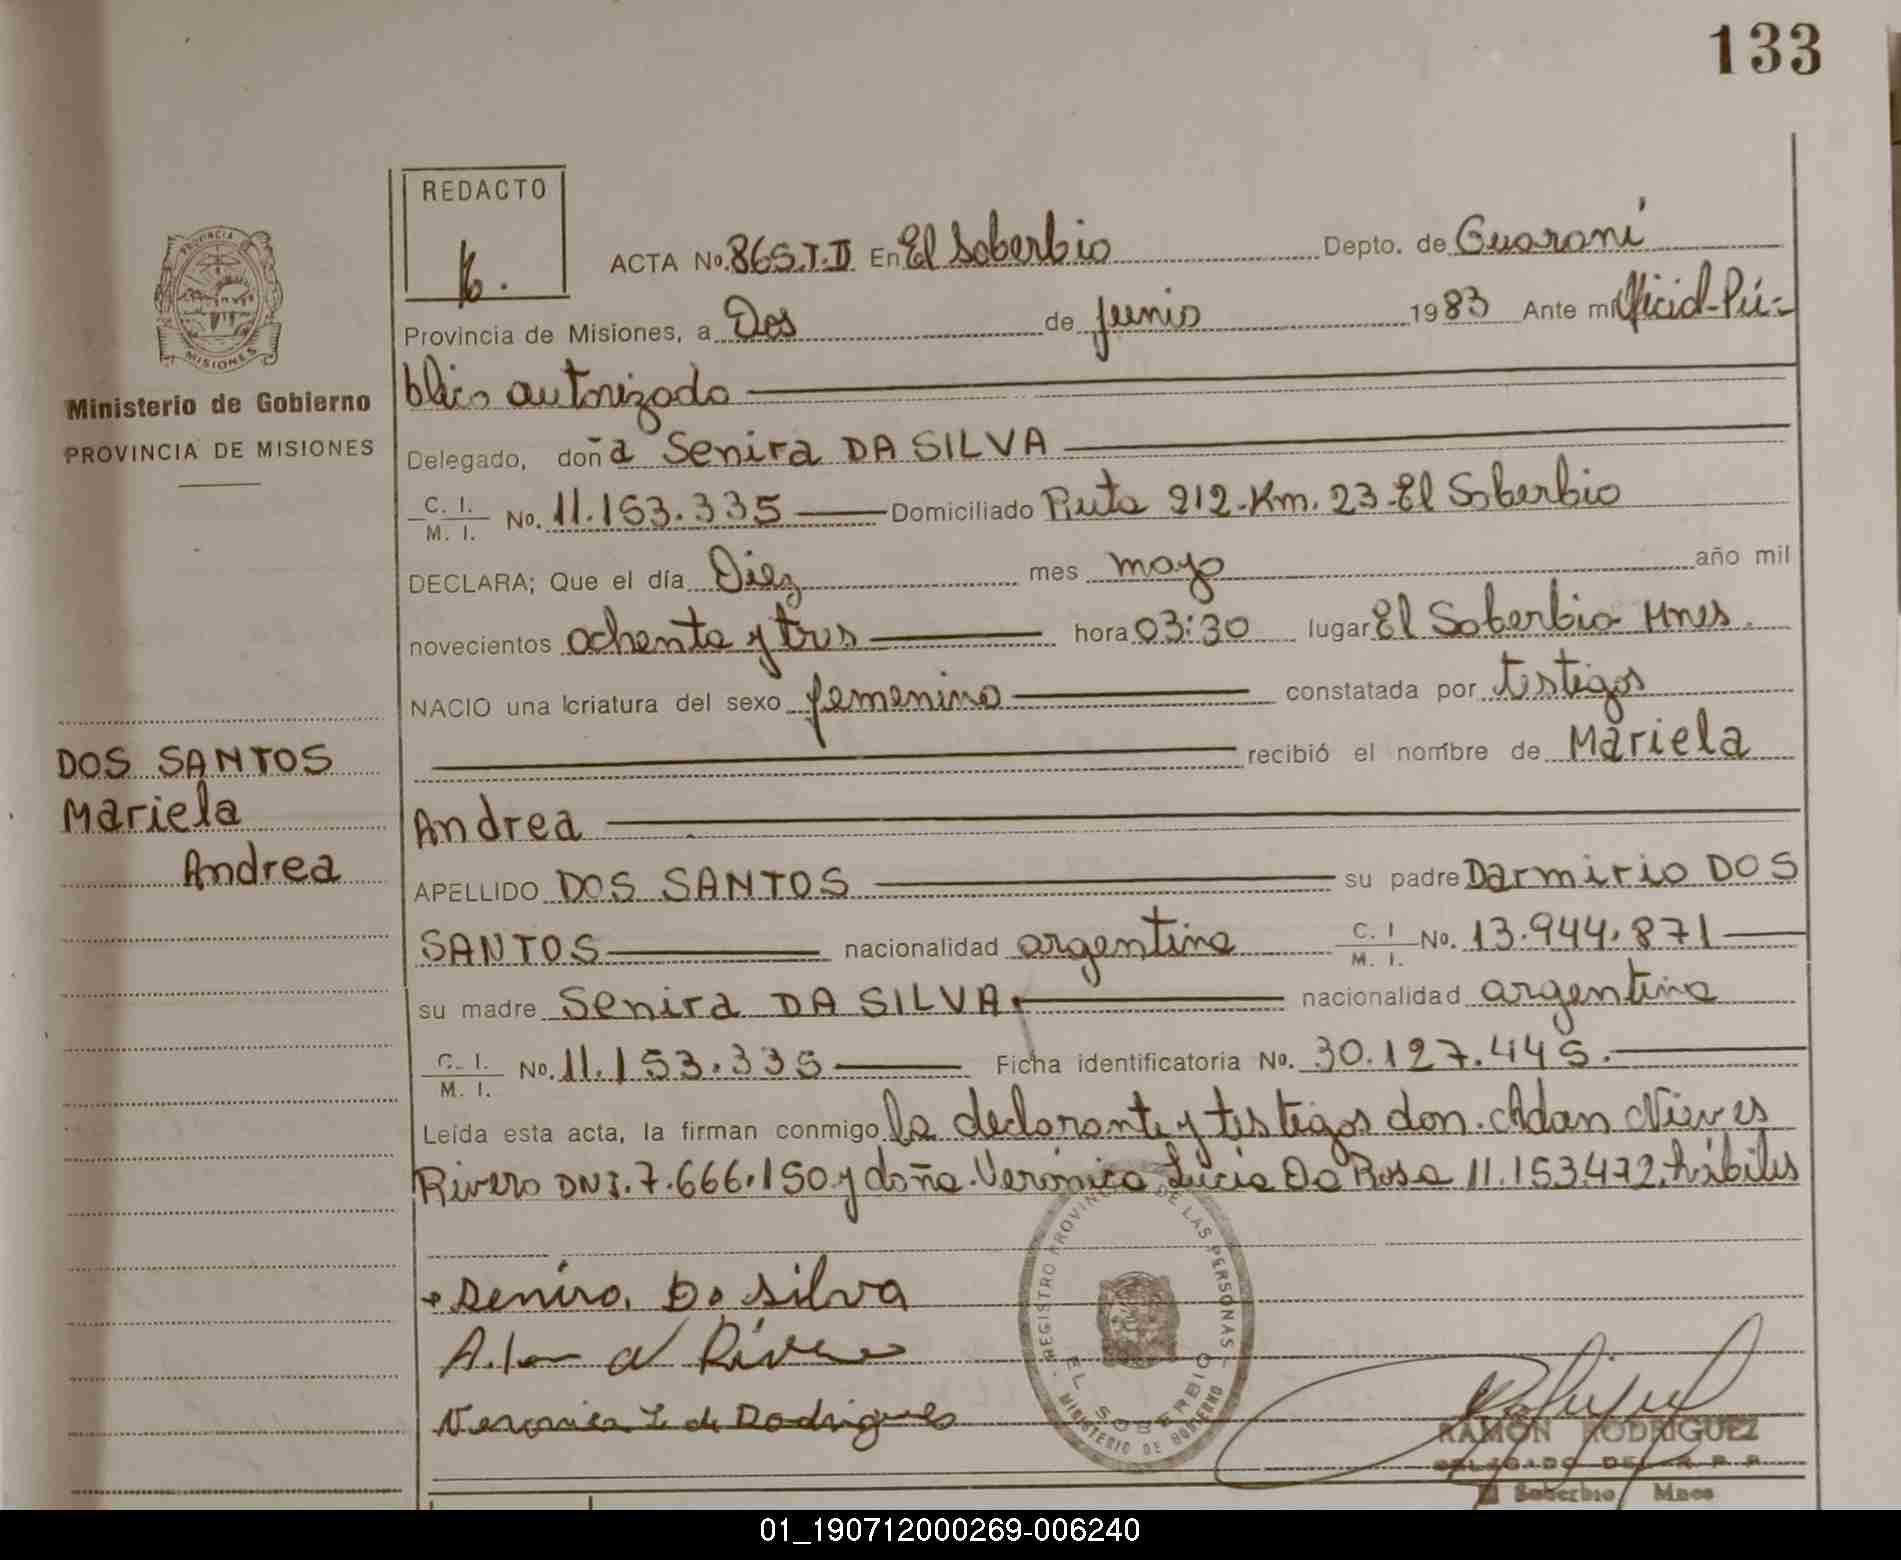 133
REDACTO
ACTA No. 865.T.II En El Soberbio Depto. de Guaraní
Provincia de Misiones, a Dos de junio 1983 Ante mi Oficial Pú-
blico autorizado
Ministerio de Gobierno
PROVINCIA DE MISIONES
Delegado, doña Senira DA SILVA
C. I. / M. I. No. 11.153.335 Domiciliado Ruta 212-Km. 23-El Soberbio
DECLARA; Que el día Diez mes mayo año mil
novecientos ochenta y tres hora 03:30 lugar El Soberbio Mnes.
NACIO una criatura del sexo femenino constatada por testigos
recibió el nombre de Mariela
Andrea
DOS SANTOS
Mariela
Andrea
APELLIDO DOS SANTOS su padre Darmirio DOS
SANTOS nacionalidad argentina C. I / M. I. No. 13.944.871
su madre Senira DA SILVA. nacionalidad argentina
C. I. / M. I. No. 11.153.335 Ficha identificatoria No. 30.127.445.
Leída esta acta, la firman conmigo la declarante y testigos don. Adan Nieves
Rivero DNI. 7.666.150 y doña. Verónica Lucia Da Rosa 11.153.472, hábiles
Senira. Da silva
A. N Rivero
Veronica L de Rodrigues
REGISTRO PROVINCIAL DE LAS PERSONAS
EL SOBERBIO
MINISTERIO DE GOBIERNO
PROVINCIA
MISIONES
RAMON RODRIGUEZ
DELEGADO DEL R. P. P.
El Soberbio Mnes
01_190712000269-006240